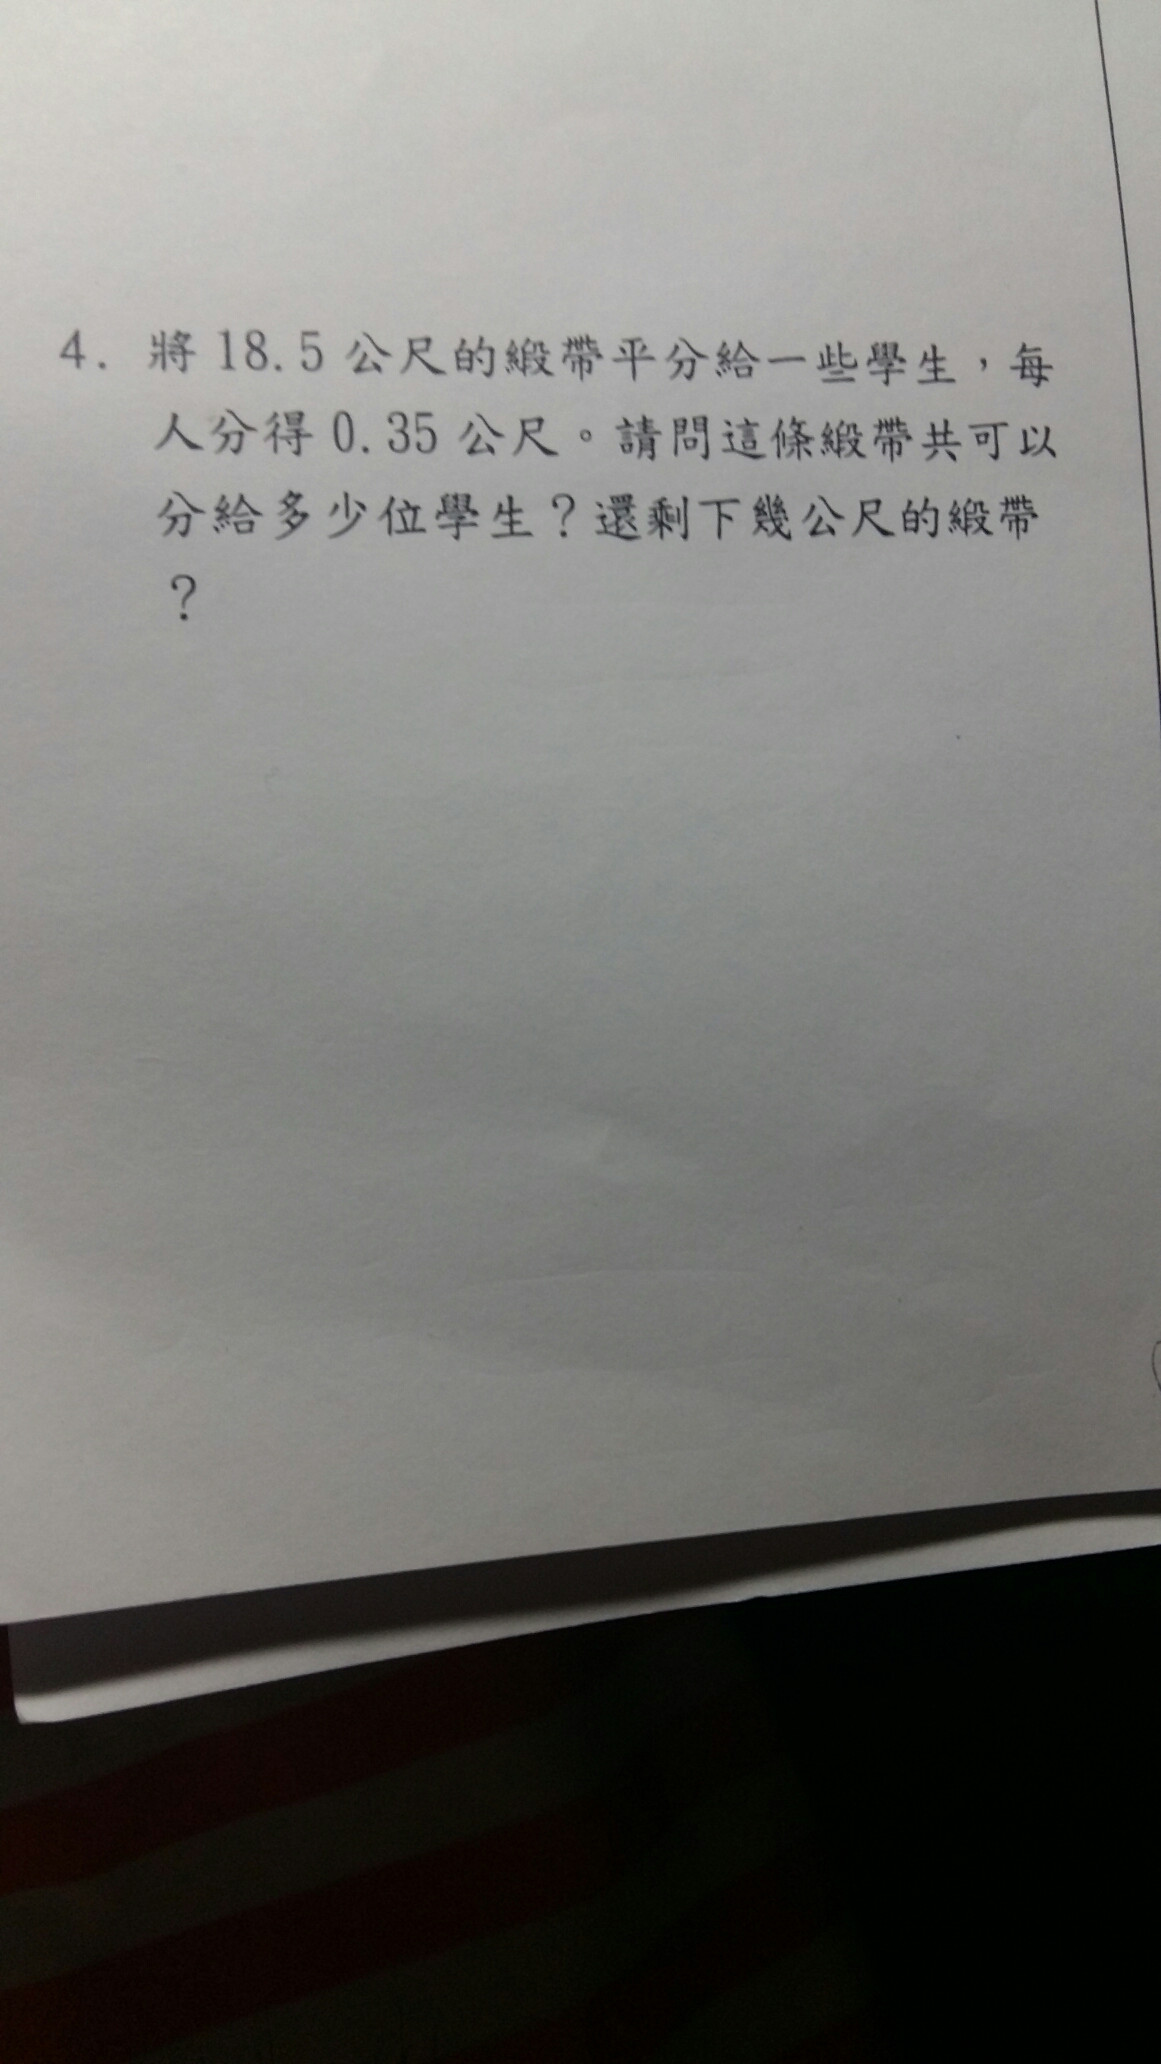 4. 將 18.5 公尺的緞帶平分給一些學生，每
人分得 0.35 公尺。請問這條緞帶共可以
分給多少位學生？還剩下幾公尺的緞帶
？